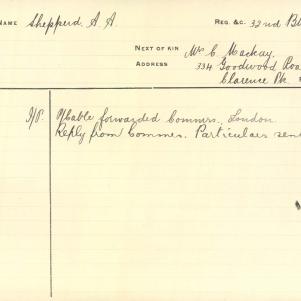 NAME Shepperd A A REG. &C. 32nd B
NEXT OF KIN Mrs C Mackay
ADDRESS 334 Goodwood Roa
Clarence Pk
Cable forwarded Commrs. London
Reply from Commrs. Particulars sen